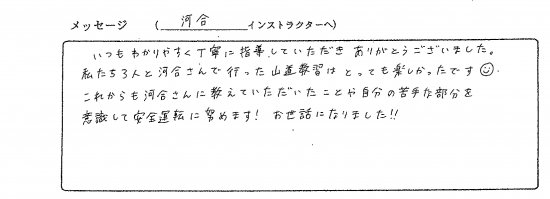 メッセージ （ 河合 インストラクターへ）
いつもわかりやすく丁寧に指導していただきありがとうございました。
私たち3人と河合さんで行った山道教習はとっても楽しかったです☺。
これからも河合さんに教えていただいたことや自分の苦手な部分を
意識して安全運転に努めます! お世話になりました!!